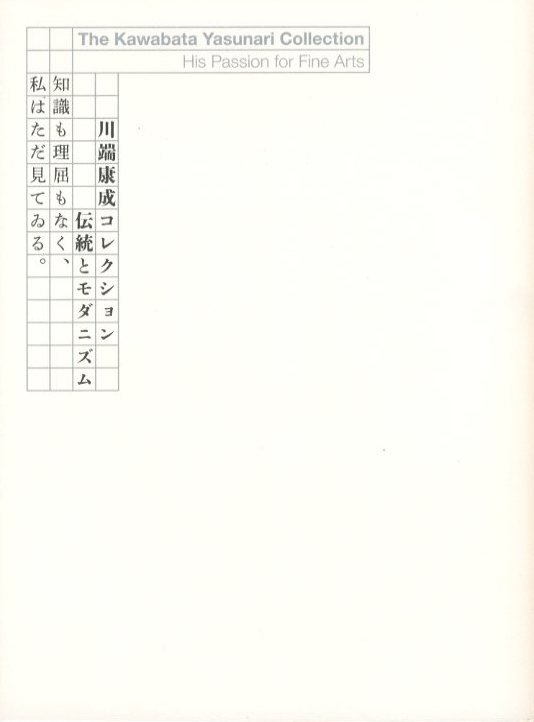 The Kawabata Yasunari Collection
His Passion for Fine Arts
川端康成コレクション
伝統とモダニズム
知識も理屈もなく、
私はただ見てゐる。